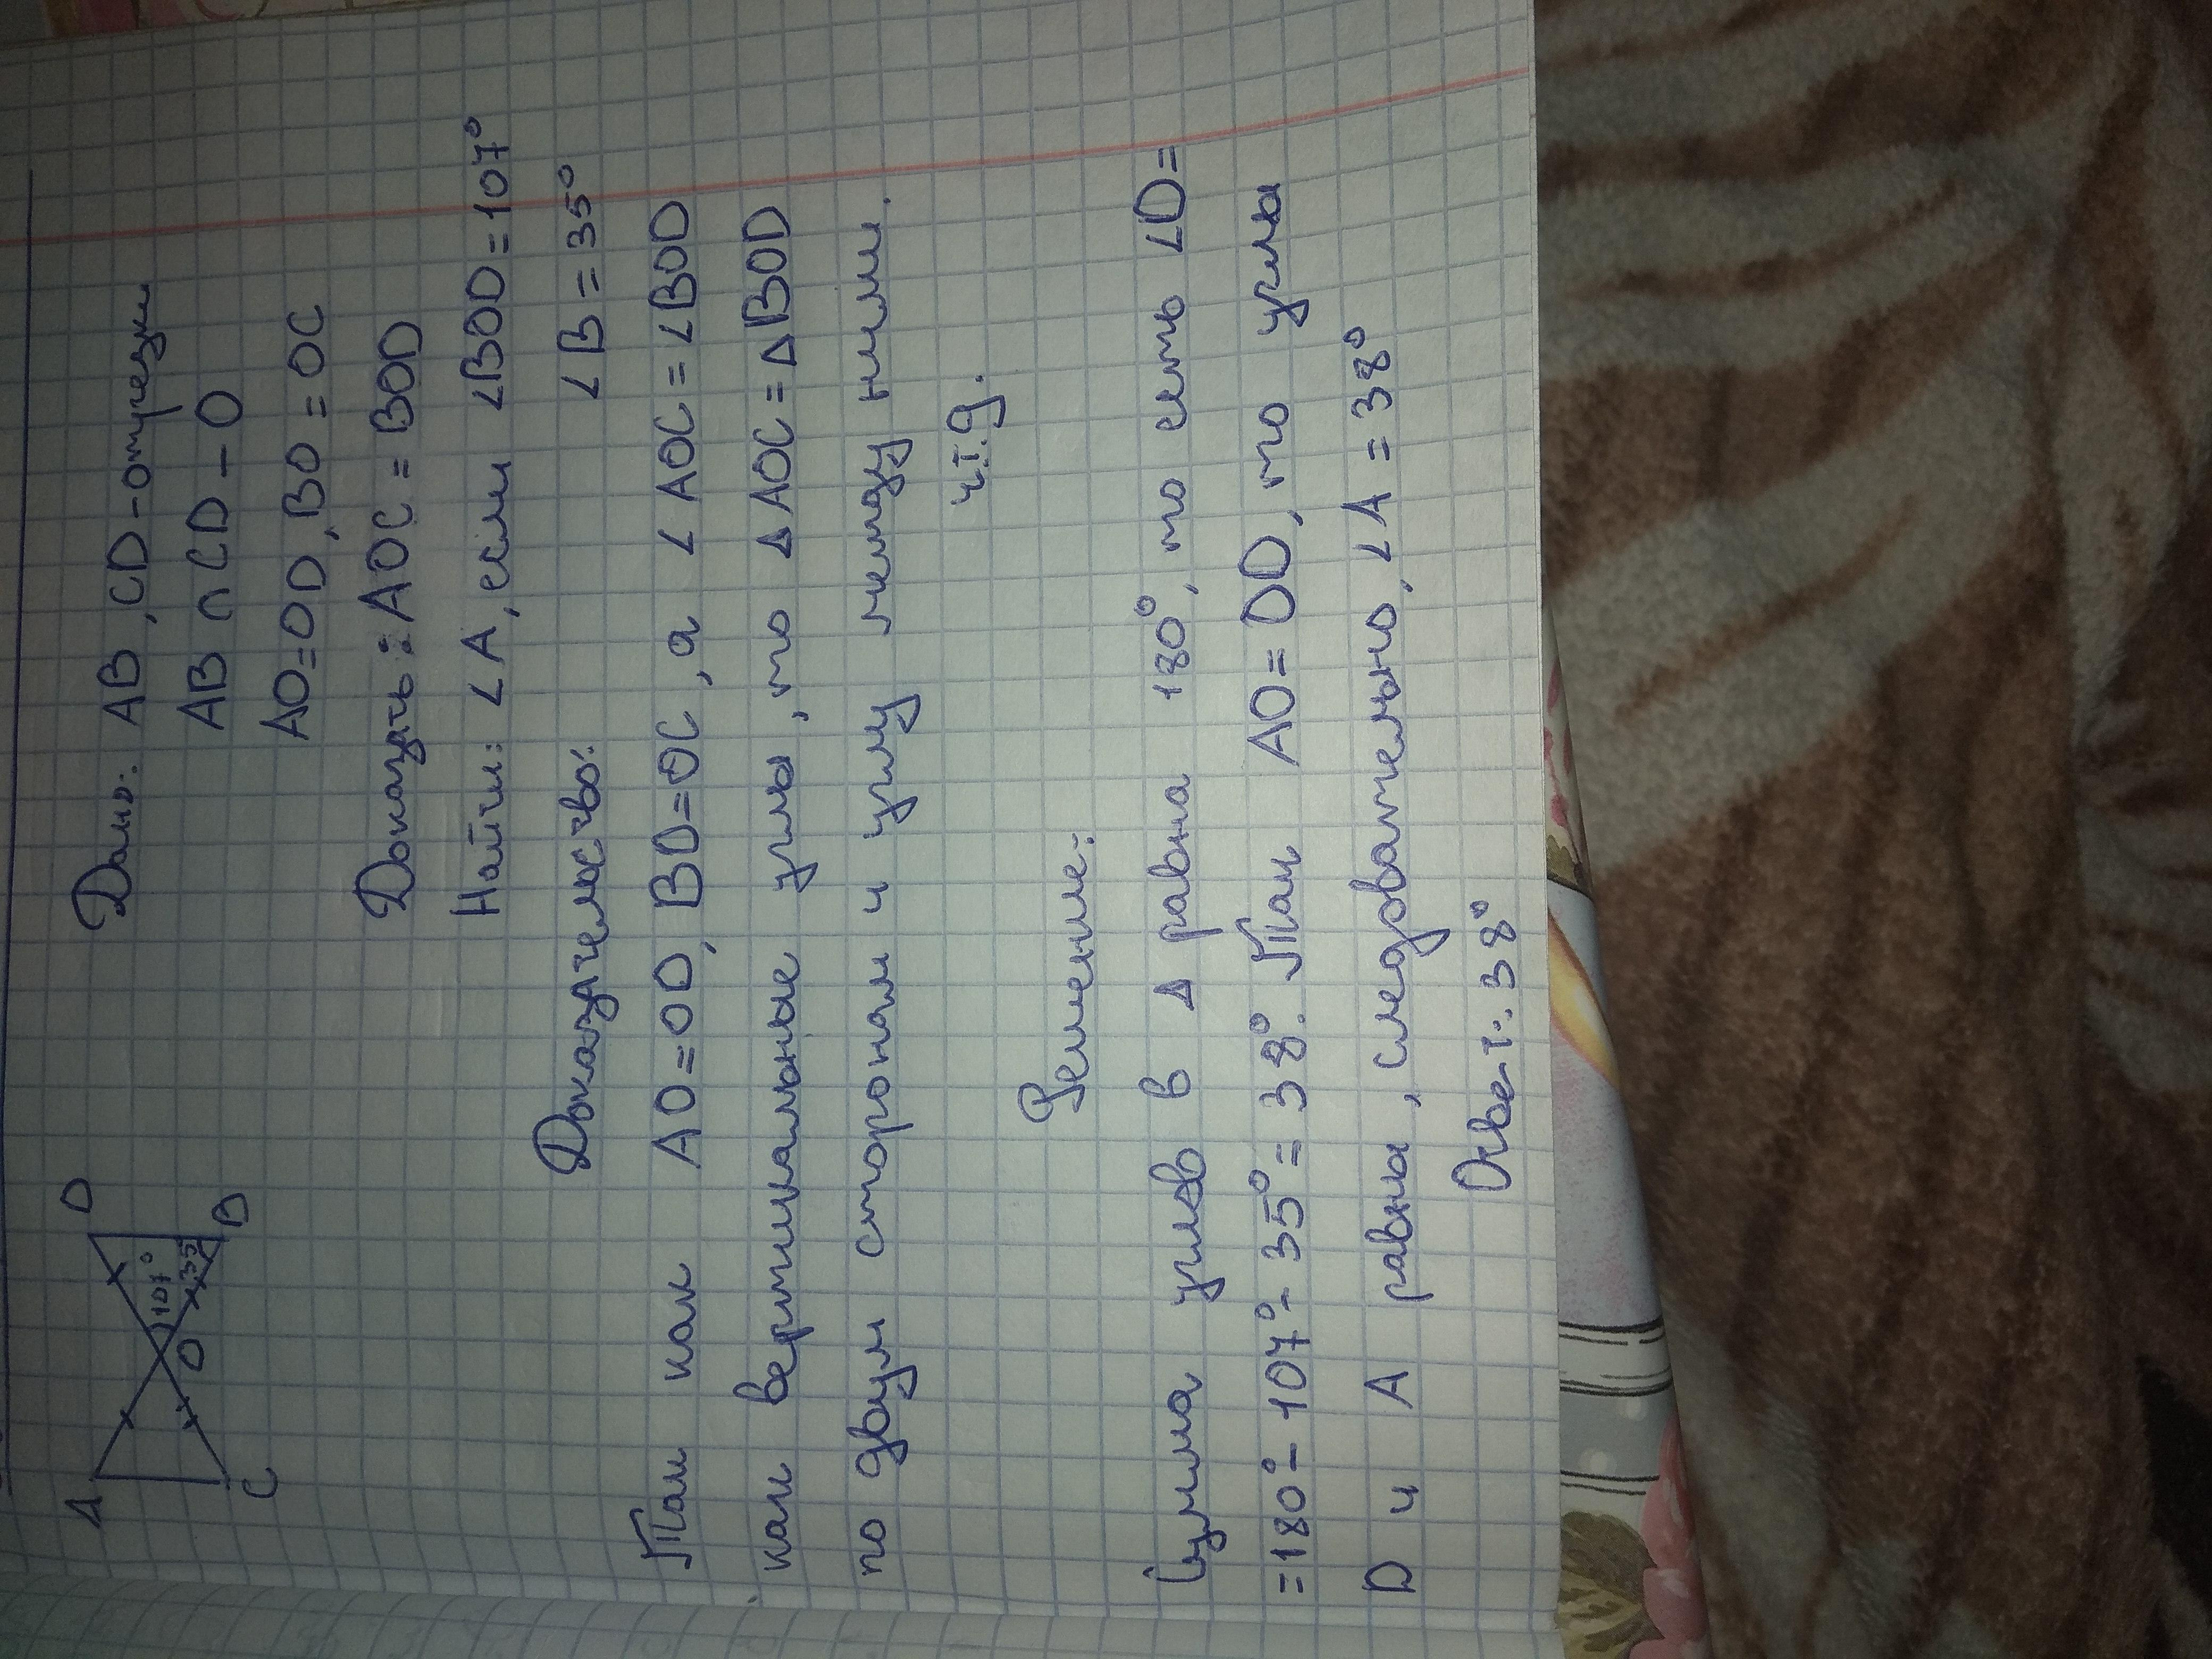 A
D
O
107°
35
C
B
Дано: AB, CD - отрезки
AB ∩ CD - O
AO=OD, BO = OC
Доказать: AOC = BOD
Найти: ∠A, если ∠BOD=107°
∠B = 35°
Доказательство:
Так как AO=OD, BO=OC, а ∠AOC=∠BOD
как вертикальные углы, то ∆AOC=∆BOD
по двум сторонам и углу между ними.
ч.т.д.
Решение:
Сумма углов в ∆ равна 180°, то есть ∠D=
=180°-107°-35°=38°. Так AO=OD, то углы
D и A равны, следовательно, ∠A=38°
Ответ: 38°